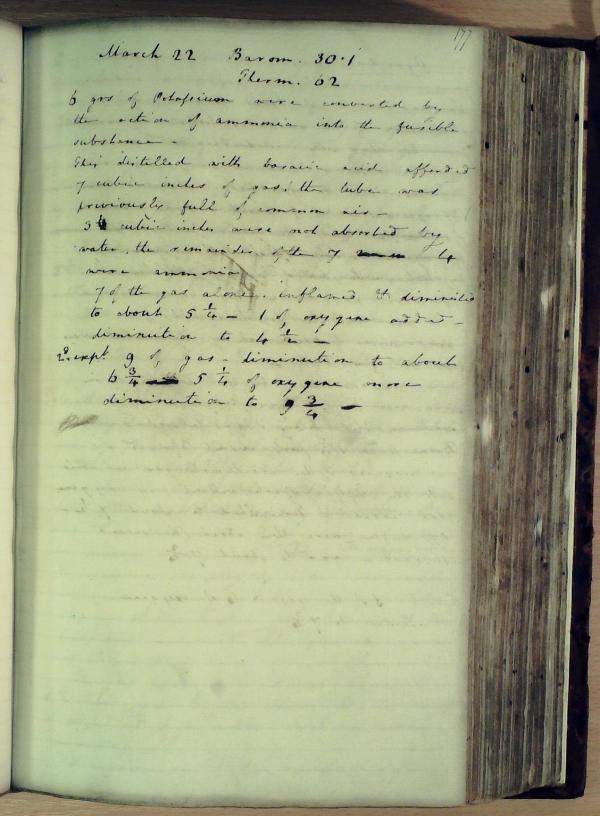 177
March 22 Barom. 30.1
Therm. 62
6 grs of Potassium were converted by
the action of ammonia into the fusible
substance -
This distilled with boracic acid afforded
7 cubic inches of gas: the tube was
previously full of common air -
3 cubic inches were not absorbed by
water, the remainder of the 7 4
were ammonia
7 of the gas alone, inflamed & diminished
to about 5 1/4 - 1 of oxygene added -
diminution to 4 1/2 -
2d. expt. 9 of gas - diminution to about
6 3/4 5 1/4 of oxygene more
diminution to 9 3/4 -